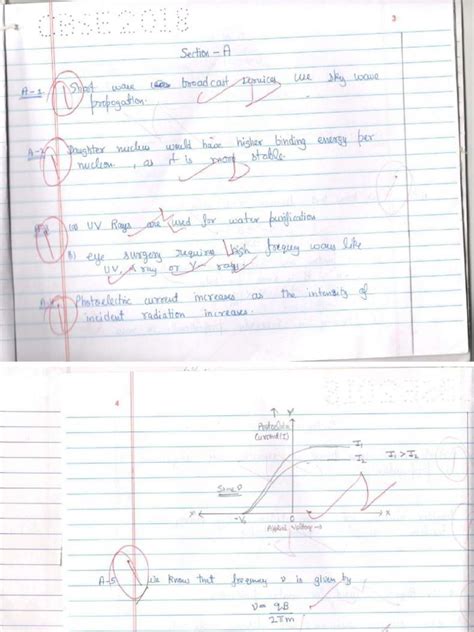 CBSE 2018
3
Section - A
A-1 Short wave broadcast services use sky wave
propogation.
A-2 Daughter nucleus would have higher binding energy per
nucleon, as it is more stable.
UV Rays are used for water purification
b) eye surgery require high frequency waves like
UV, X ray or γ- rays
Photoelectric current increases as the intensity of
incident radiation increases.
CBSE 2018
4
Y
Current (I)
I1
I2
I1 > I2
Same ν
X
-V0
O
Applied Voltage →
X
A-5 We know that frequency ν is given by
ν = qB
2πm